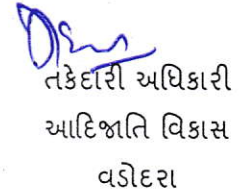 તકેદારી અધિકારી
આદિજાતિ વિકાસ
વડોદરા